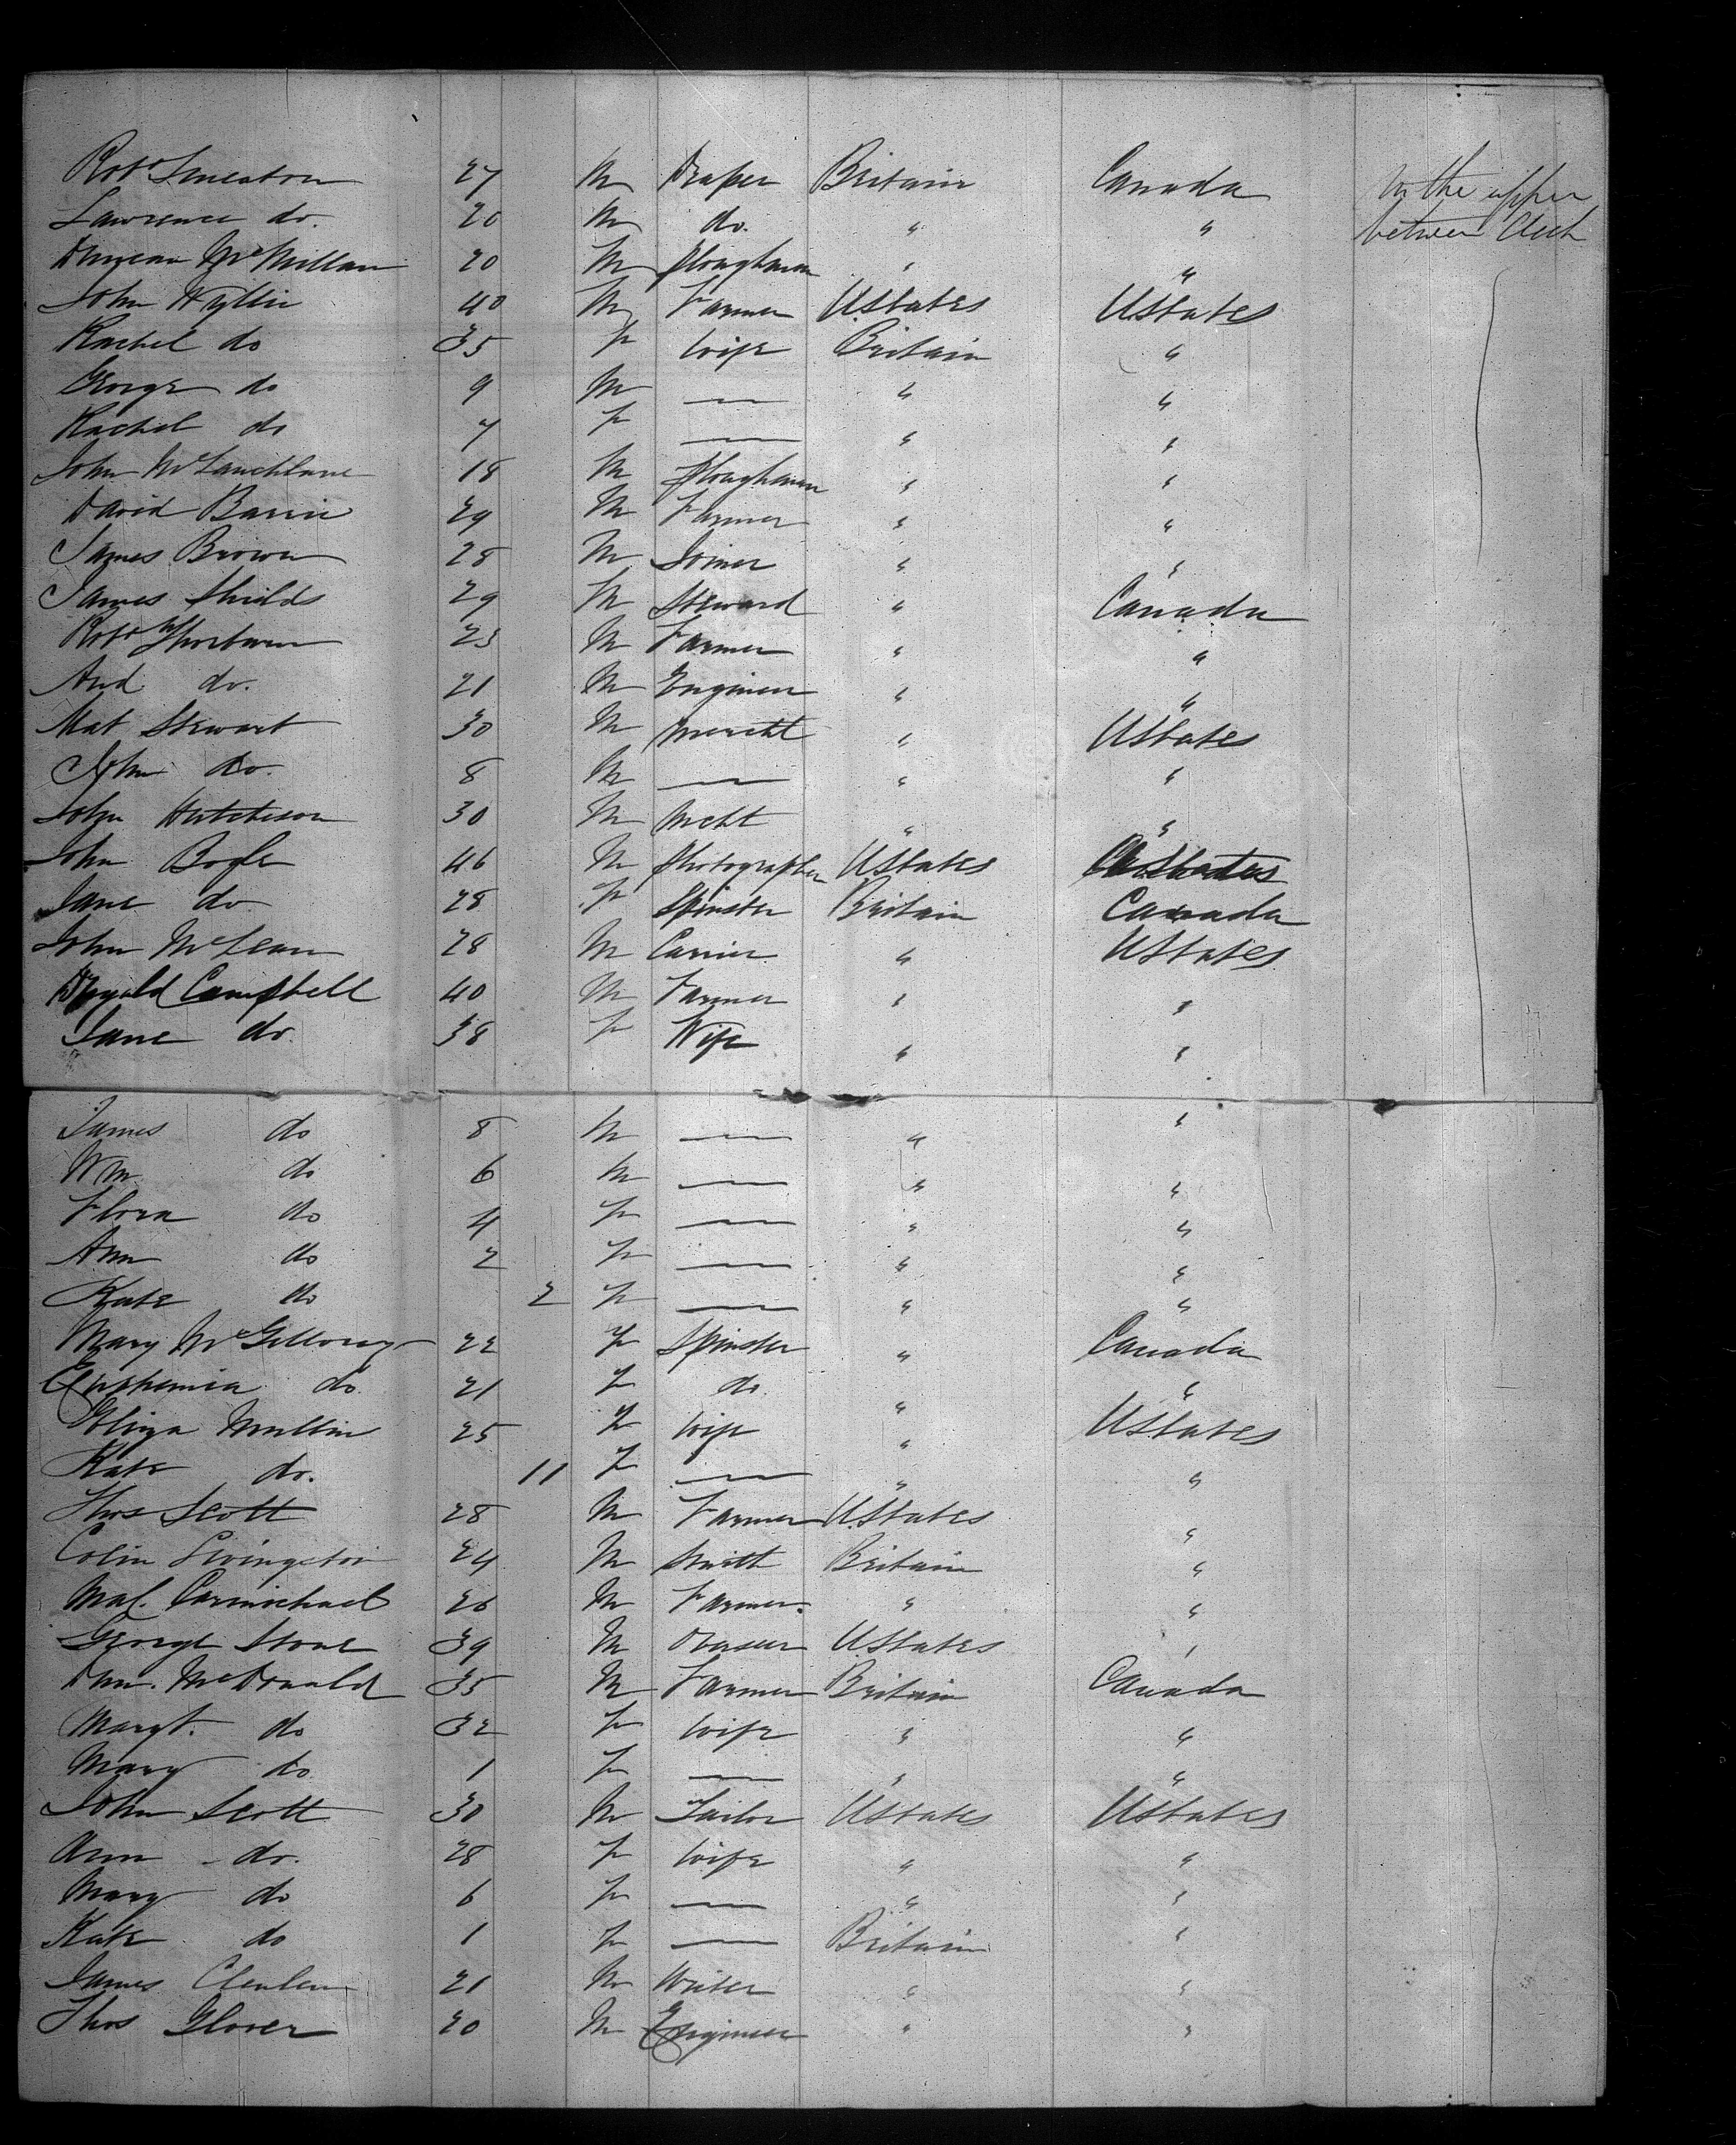 Robt Smeaton 27 M Draper Britain Canada In the upper
Lawrence do. 20 M do. " " between Deck
Duncan McMillan 20 M Ploughman " "
John Wyllie 40 M Farmer UStates UStates
Rachel do 35 F Wife Britain "
George do 9 M — " "
Rachel do 7 F — " "
John McLauchlane 18 M Ploughman " "
David Barrie 29 M Farmer " "
James Brown 28 M Joiner " "
James Shields 29 M Steward " Canada
Robt 23 M Farmer " "
And do. 21 M Engineer " "
Mat Stewart 30 M Mercht " UStates
John do. 8 M — " "
John Hutcheson 30 M Mcht " "
John Bogle 46 M Photographer UStates UStates
Jane do 28 F Spinster Britain Canada
John McLean 28 M Carrier " UStates
Dugald Campbell 40 M Farmer " "
Jane do. 38 F Wife " "
James do 8 M — " "
Wm do 6 M — " "
Flora do 4 F — " "
Ann do 2 F — " "
Kate do 2 F — " "
Mary McGilloray 22 F Spinster " Canada
Euphemia do. 21 F do. " "
Eliza Mullin 25 F Wife " UStates
Kate do. 11 F — " "
Thos Scott 28 M Farmer UStates "
Colin Livingston 24 M Smith Britain "
Mal. Carmichael 26 M Farmer. " "
George Stone 39 M UStates "
Dun. McDonald 35 M Farmer Britain Canada
Margt. do 32 F Wife " "
Mary do 1 F — " "
John Scott 30 M Tailor UStates UStates
Ann do. 28 F Wife " "
Mary do 6 F — " "
Kate do 1 F — Britain "
James 21 M Writer " "
Thos Glover 20 M Engineer " "